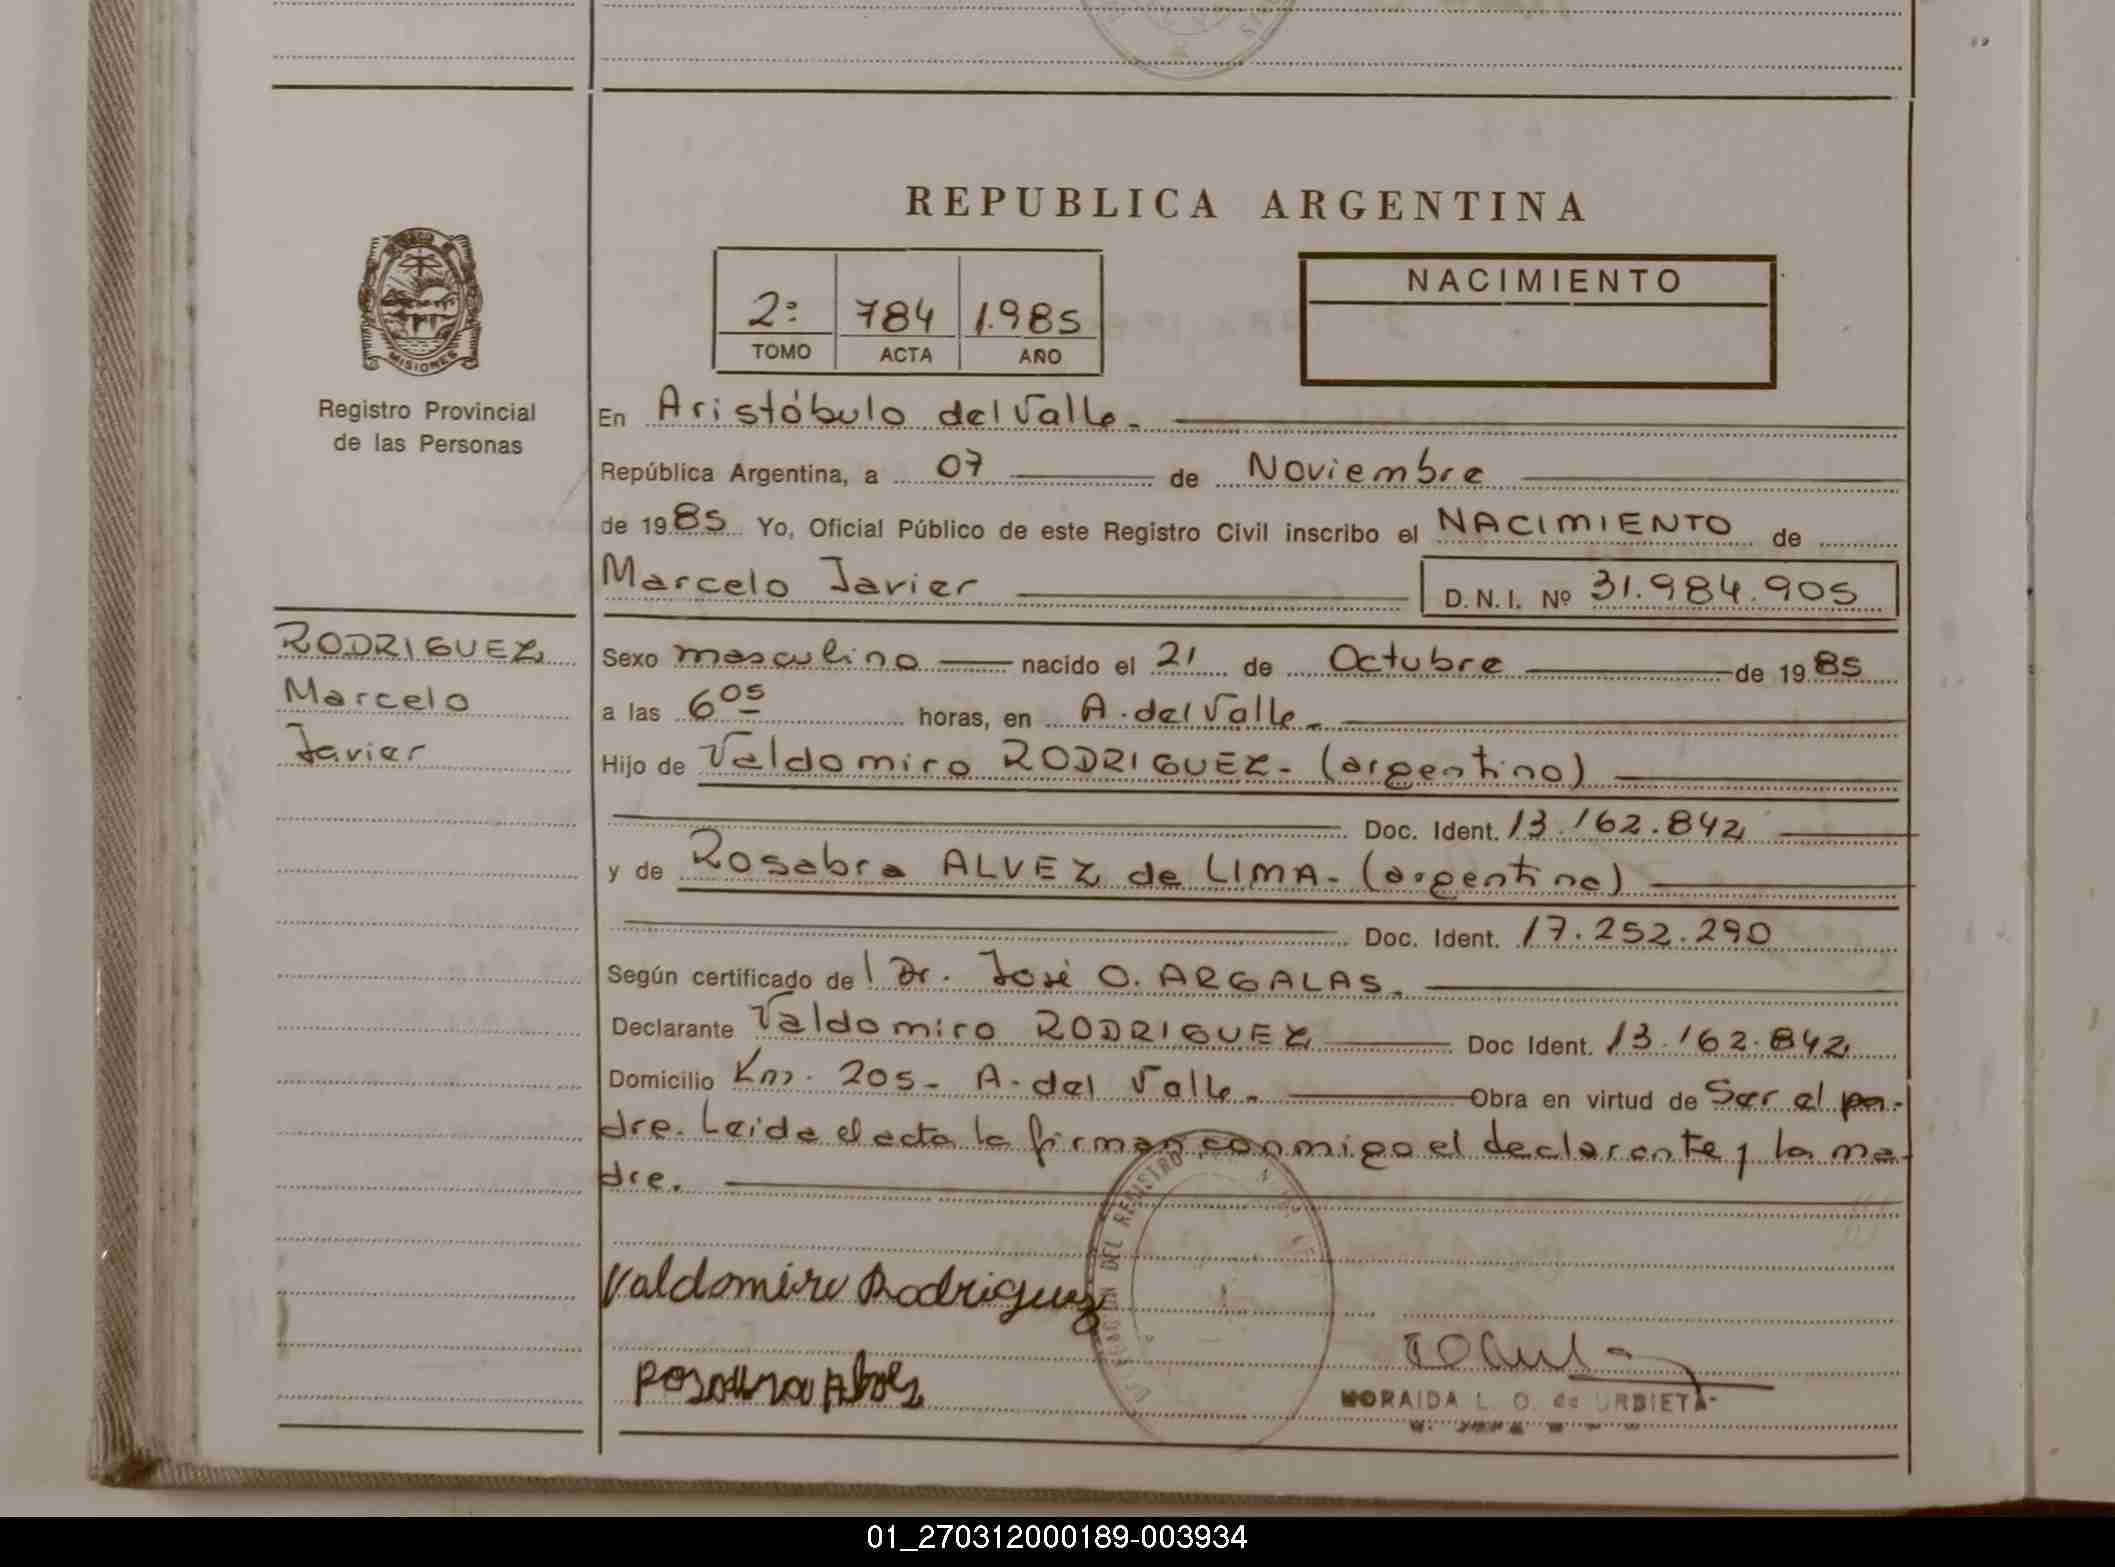 REPUBLICA ARGENTINA
MISIONES
Registro Provincial
de las Personas
2º 784 1.985
TOMO ACTA AÑO
NACIMIENTO
En Aristóbulo del Valle.
República Argentina, a 07 de Noviembre
de 1985 Yo, Oficial Público de este Registro Civil inscribo el NACIMIENTO de
Marcelo Javier D.N.I. Nº 31.984.905
RODRIGUEZ
Marcelo
Javier
Sexo masculino nacido el 21 de Octubre de 1985
a las 6 05 horas, en A. del Valle.
Hijo de Valdomiro RODRIGUEZ - (argentino)
Doc. Ident. 13.162.842
y de Rosabra ALVEZ de LIMA - (argentina)
Doc. Ident. 17.252.290
Según certificado de l Dr. José O. ARGALAS.
Declarante Valdomiro RODRIGUEZ Doc Ident. 13.162.842
Domicilio Km. 205 - A. del Valle. Obra en virtud de Ser el pa-
dre. Leida el acta la firman conmigo el declarante y la ma-
dre.
DEL REGISTRO
Valdomiro Rodriguez
NORAIDA L. O. de URBIETA
01_270312000189-003934